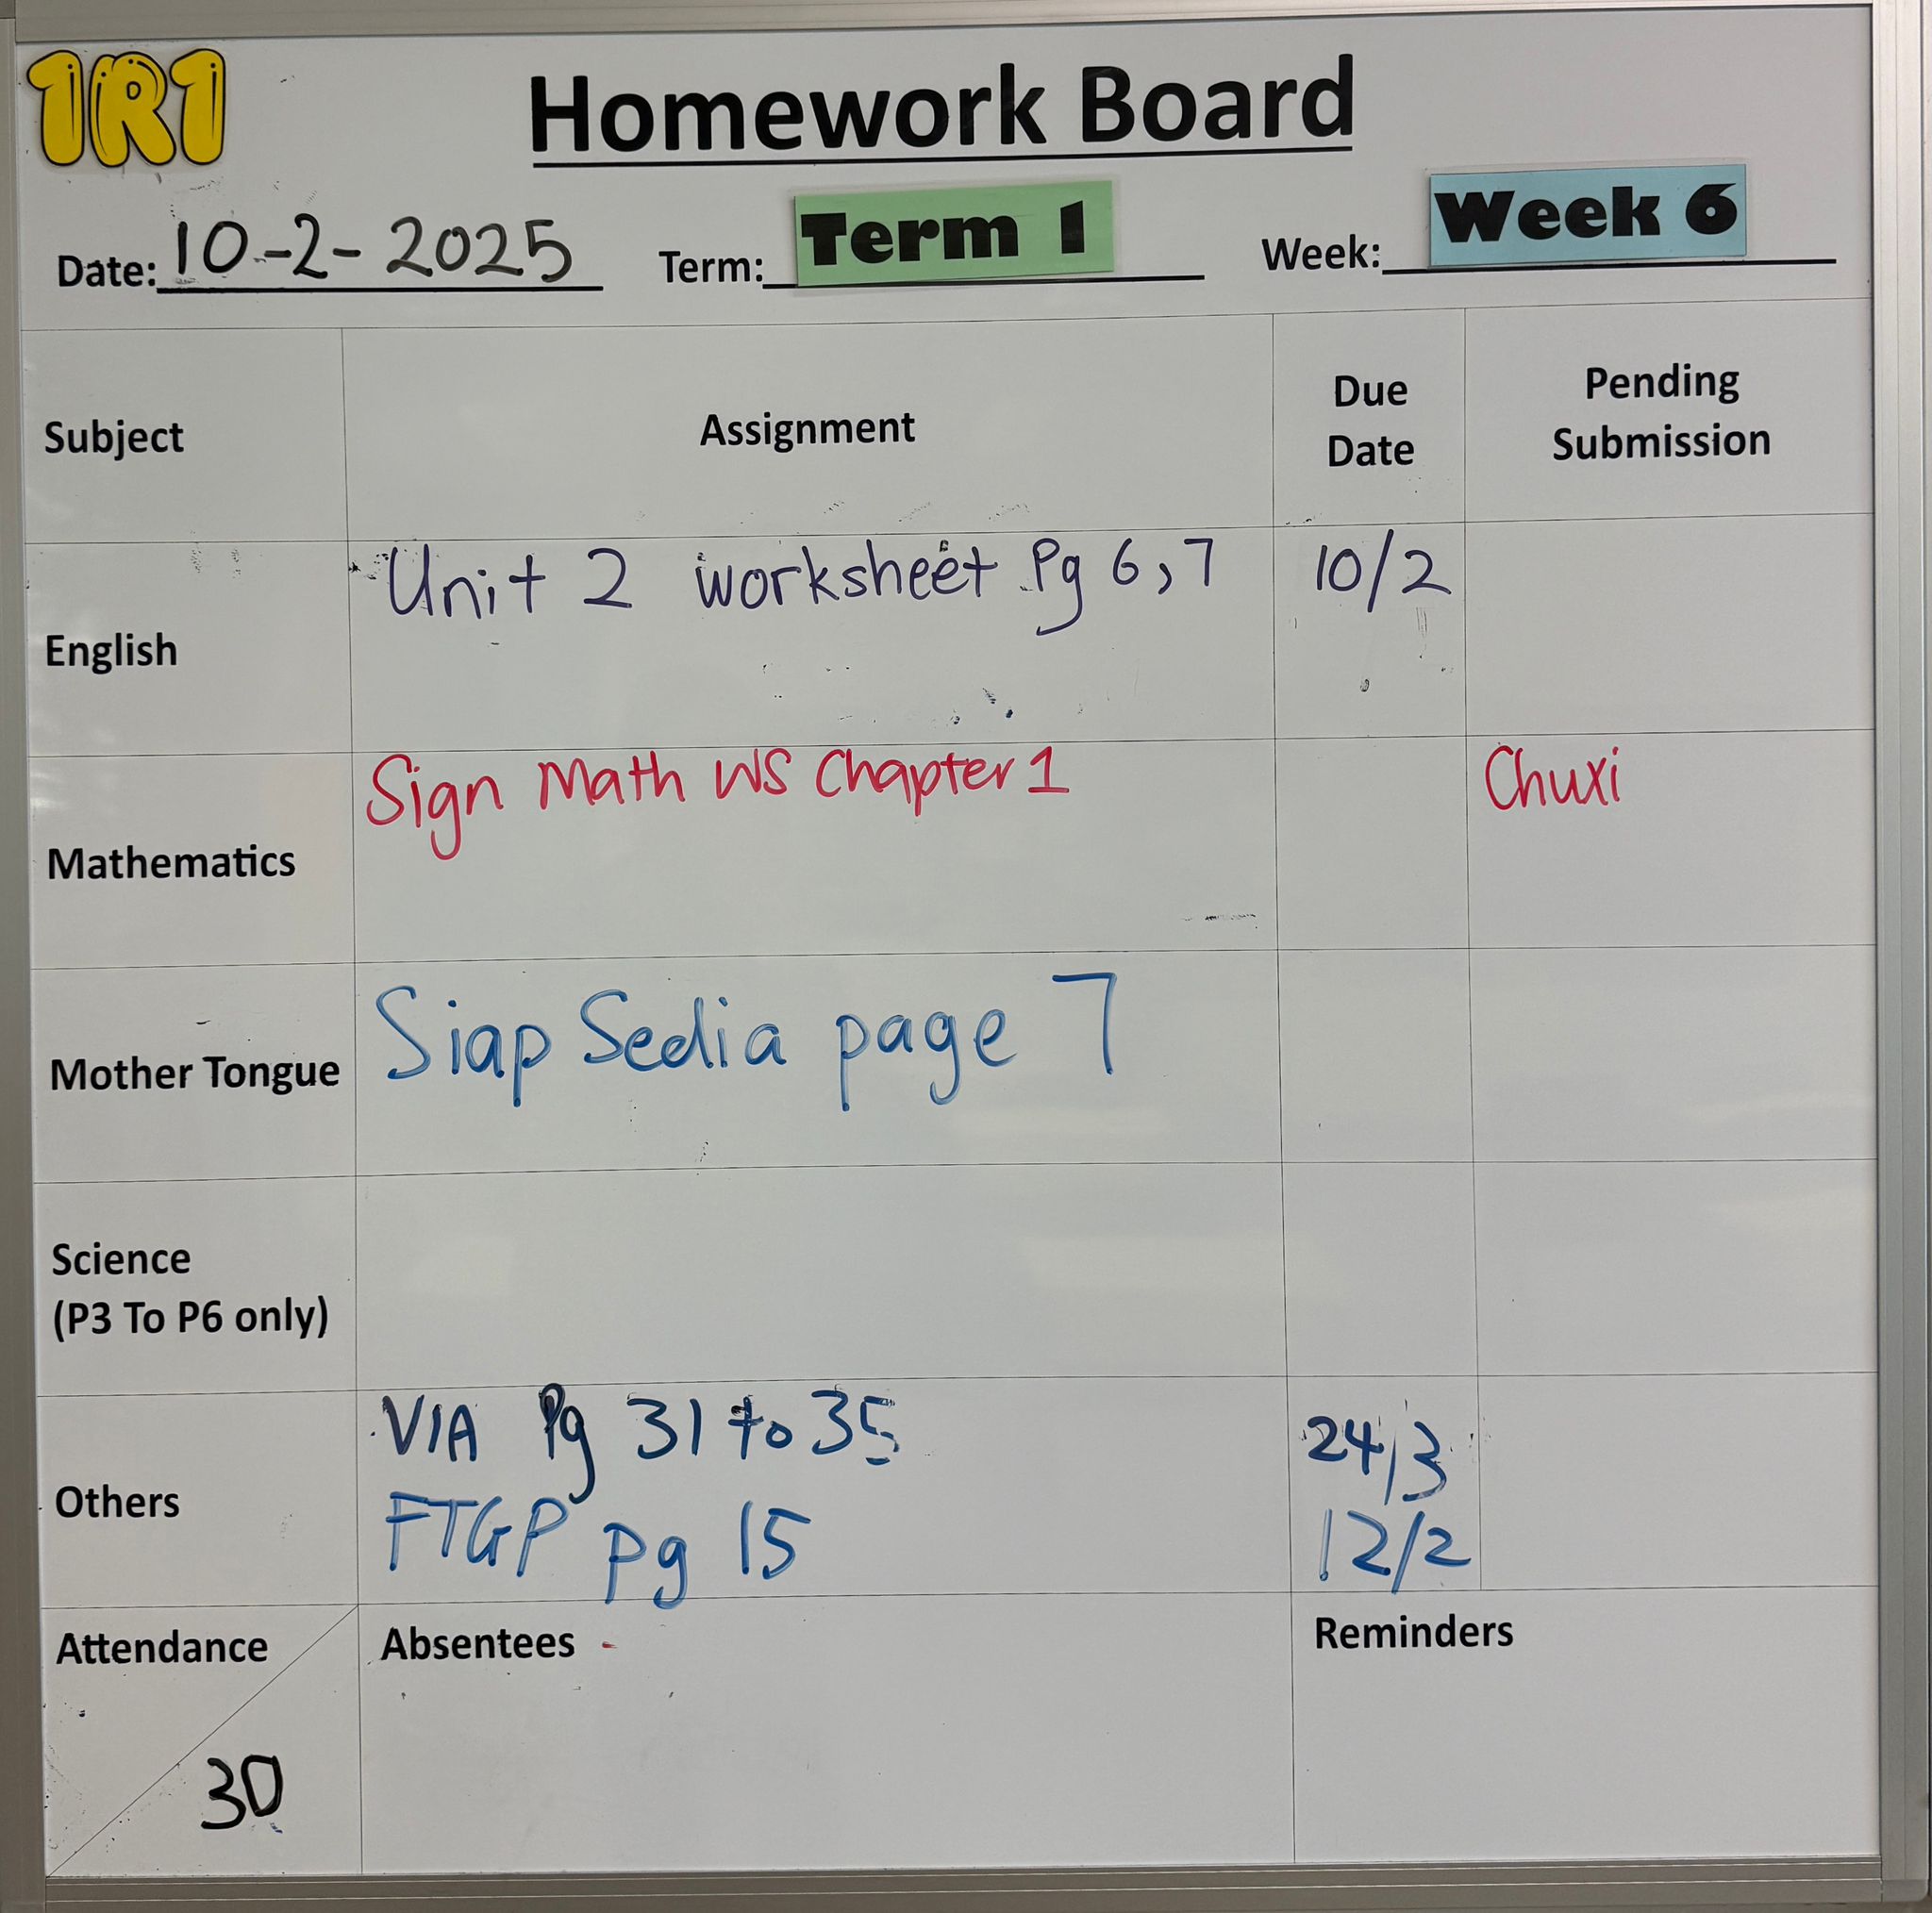 1R1
Homework Board
Date: 10-2-2025 Term: Term 1 Week: Week 6
Subject Assignment Due Date Pending Submission
English Unit 2 worksheet Pg 6,7 10/2
Mathematics Sign Math WS Chapter 1 Chuxi
Mother Tongue Siap Sedia page 7
Science
(P3 To P6 only)
Others VIA Pg 31 to 35 24/3
FTGP pg 15 12/2
Attendance Absentees - Reminders
30